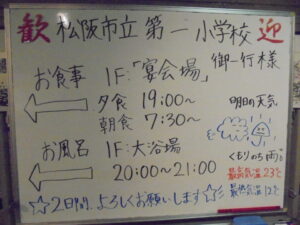 歓 松阪市立第一小学校 迎
御一行様
お食事 1F:「宴会場」
夕食 19:00~
朝食 7:30~
お風呂 1F:大浴場
20:00~21:00
☆2日間、よろしくお願いします☆
明日の天気
くもりのち雨。
最高気温23℃
最低気温12℃